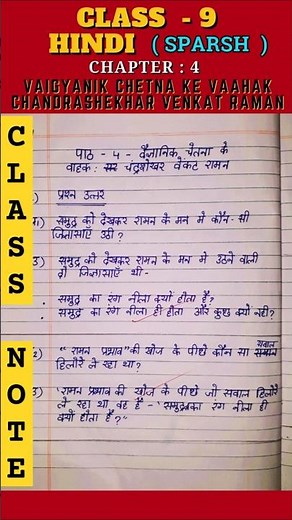 CLASS - 9
HINDI ( SPARSH )
CHAPTER : 4
VAIGYANIK CHETNA KE VAAHAK
CHANDRASHEKHAR VENKAT RAMAN
CLASS
NOTE
पाठ - 4 - वैज्ञानिक चेतना के
वाहक : चंद्रशेखर वेंकट रामन
प्रश्न उत्तर
समुद्र को देखकर रामन के मन में कौन-सी
जिज्ञासाएँ उठी ?
समुद्र को देखकर रामन के मन में उठने वाली
दो जिज्ञासाएँ थी -
समुद्र का रंग नीला क्यों होता है?
समुद्र का रंग नीला ही होता और कुछ क्यों नहीं?
2) "रामन प्रभाव" की खोज के पीछे कौन सा सवाल
हिलोरें ले रहा था?
'रामन प्रभाव की खोज के पीछे जो सवाल हिलोरें
ले रहा था वह है - 'समुद्र का रंग नीला ही
क्यों होता है?"